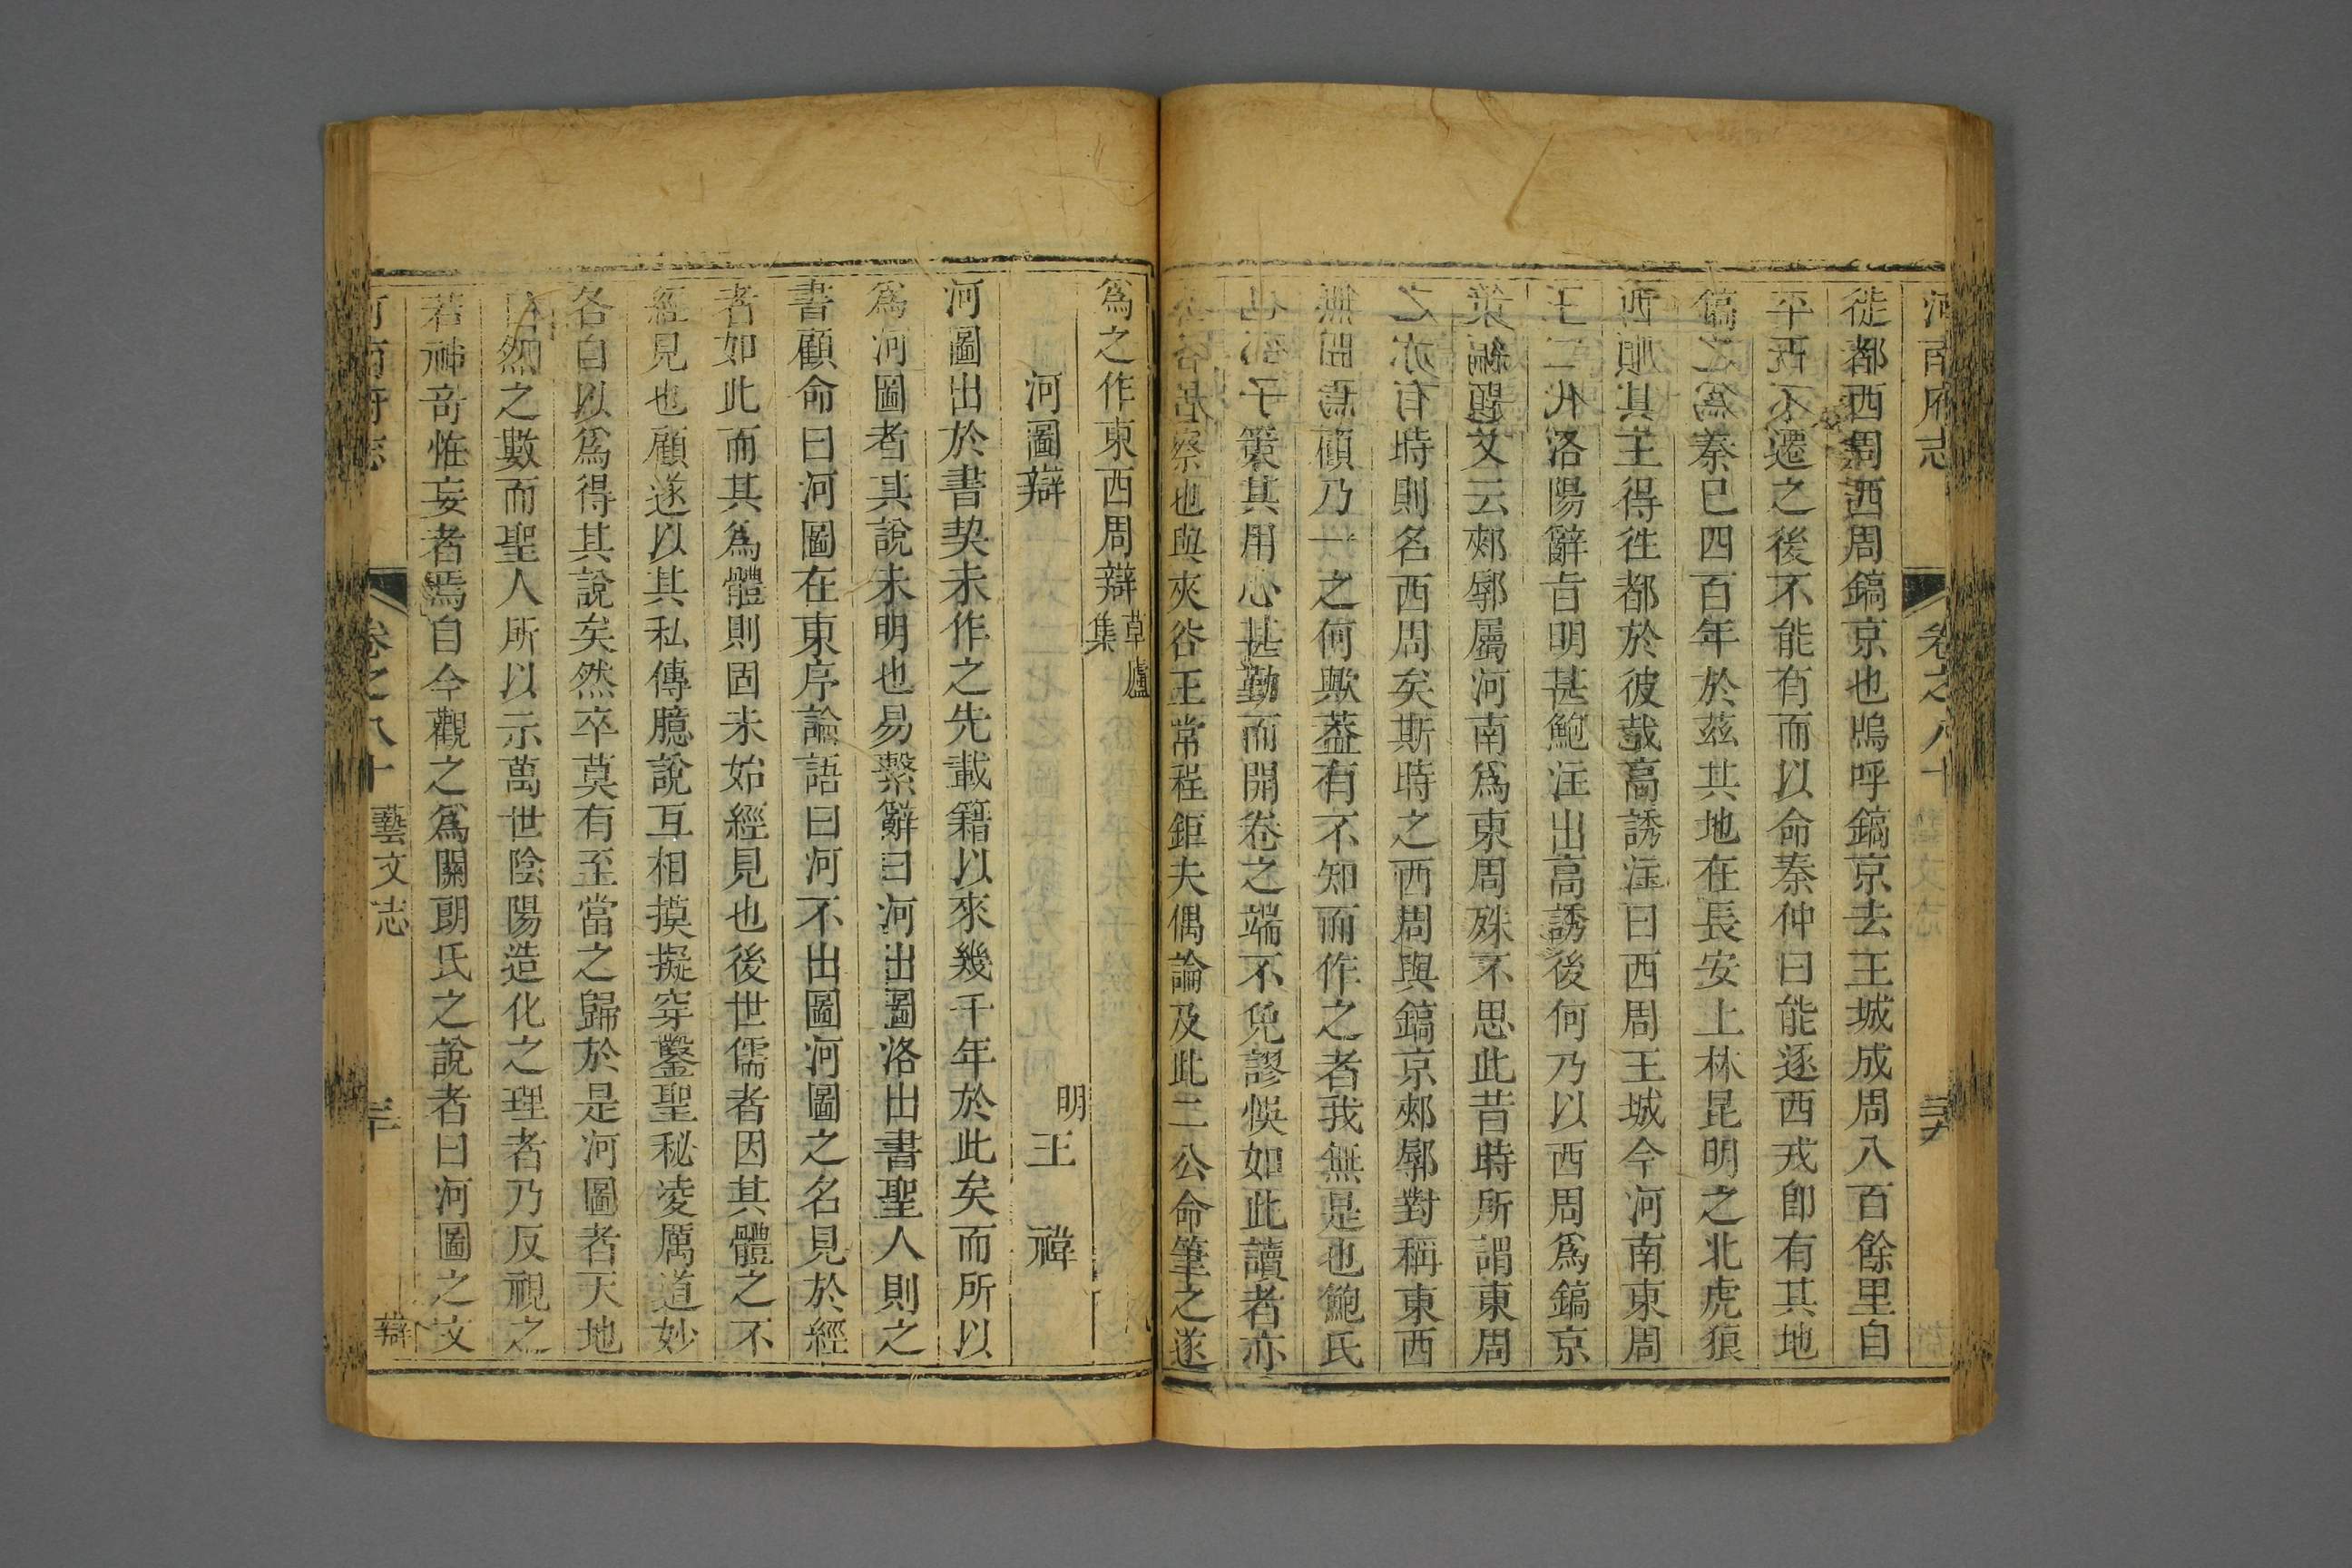 河南府志 卷之八十 藝文志
徙都西周西周鎬京也嗚呼鎬京去王城成周八百餘里自
平王不遷之後不能有而以命秦仲曰能逐西戎卽有其地
鎬之爲秦已四百年於茲其地在長安上林昆明之北虎狼
所順其王得徃都於彼哉高誘注曰西周王城今河南東周
王二代洛陽辭旨明甚鮑注出高誘後何乃以西周爲鎬京
策編題文云郟鄏屬河南爲東周殊不思此昔時所謂東周
之亦有時則名西周矣斯時之西周與鎬京郟鄏對稱東西
無聞焉顧乃一之何歟葢有不知而作之者我無是也鮑氏
也鄒子策其用心甚勤而開卷之端不免謬悞如此讀者亦
察也與夾谷王常程鉅夫偶論及此二公命筆之遂
爲之作東西周辯草廬集
河圖辯 明 王禕
河圖出於書契未作之先載籍以來幾千年於此矣而所以
爲河圖者其說未明也易繫辭曰河出圖洛出書聖人則之
書顧命曰河圖在東序論語曰河不出圖河圖之名見於經
者如此而其爲體則固未始經見也後世儒者因其體之不
經見也顧遂以其私傳臆說互相摸擬穿鑿聖秘凌厲道妙
各自以爲得其說矣然卒莫有至當之歸於是河圖者天地
自然之數而聖人所以示萬世陰陽造化之理者乃反視之
若神奇恠妄者焉自今觀之爲關朗氏之說者曰河圖之文
河南府志 卷之八十 藝文志 辯